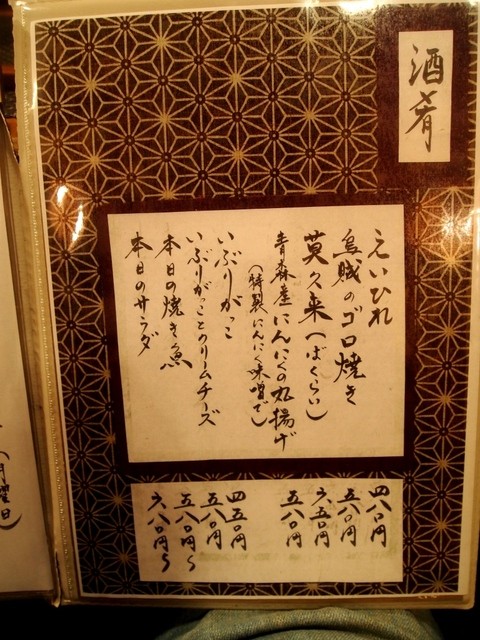 酒肴
えいひれ
烏賊のゴロ焼き
莫久来(ばくらい)
青森産にんにくの丸揚げ
(特製にんにく味噌で)
いぶりがっこ
いぶりがっことクリームチーズ
本日の焼き魚
本日のサラダ
四八〇円
五八〇円
六五〇円
五八〇円
四五〇円
五八〇円
五八〇円〜
六八〇円〜
(月曜日)